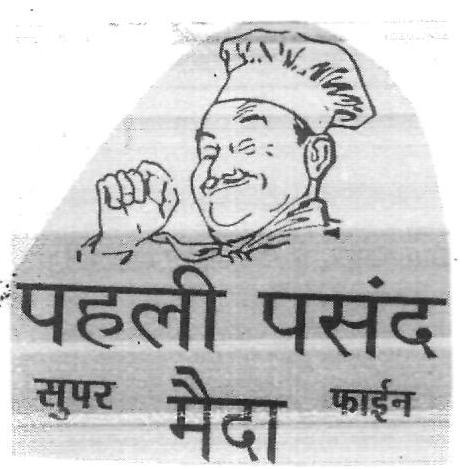 पहली पसंद
सुपर मैदा फाईन